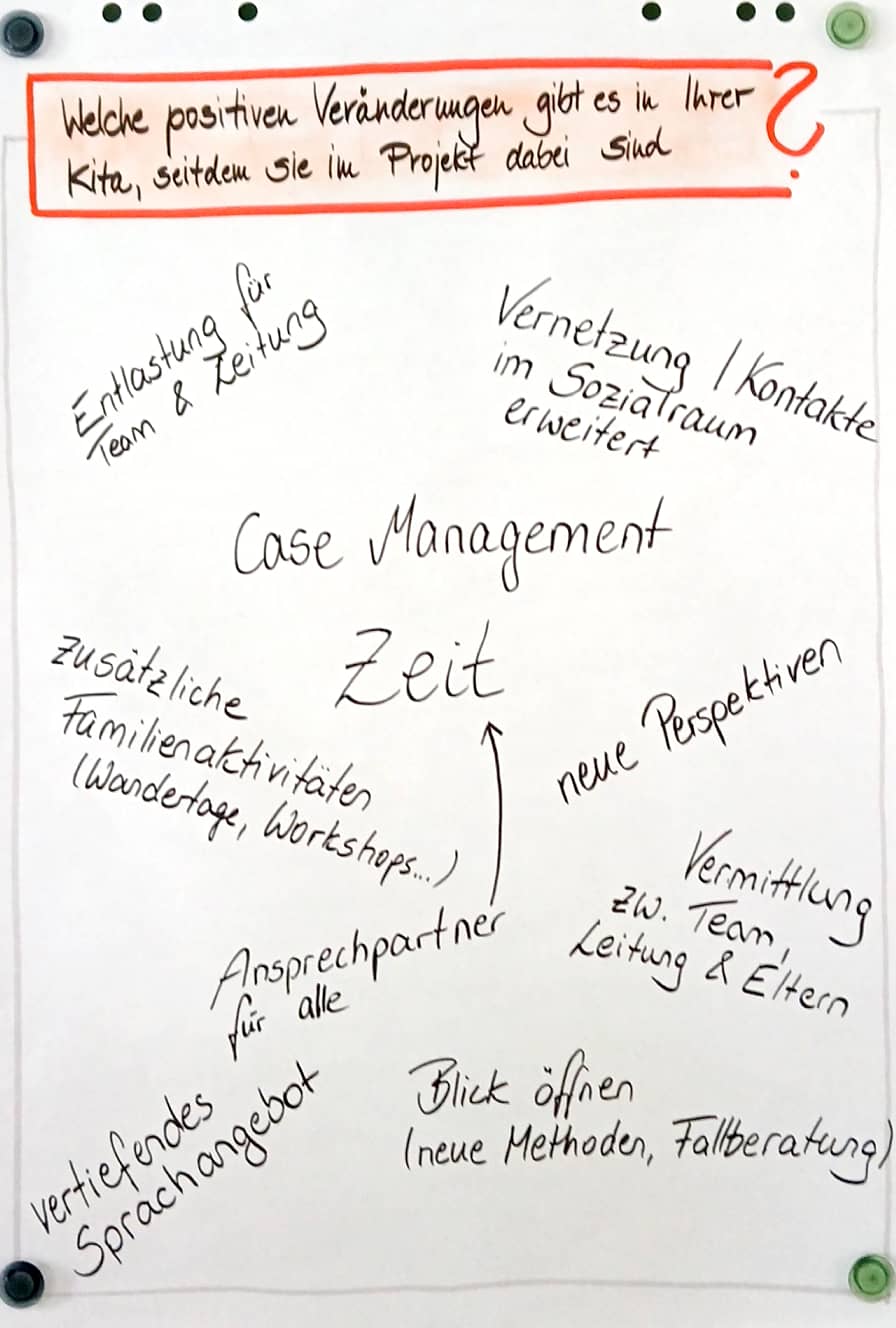 Welche positiven Veränderungen gibt es in Ihrer
Kita, seitdem sie im Projekt dabei sind ?
Entlastung für
Team & Leitung
Vernetzung / Kontakte
im Sozialraum
erweitert
Case Management
Zeit
zusätzliche
Familienaktivitäten
(Wandertage, Workshops...)
neue Perspektiven
Vermittlung
zw. Team,
Leitung & Eltern
Ansprechpartner
für alle
vertiefendes
Sprachangebot
Blick öffnen
(neue Methoden, Fallberatung)